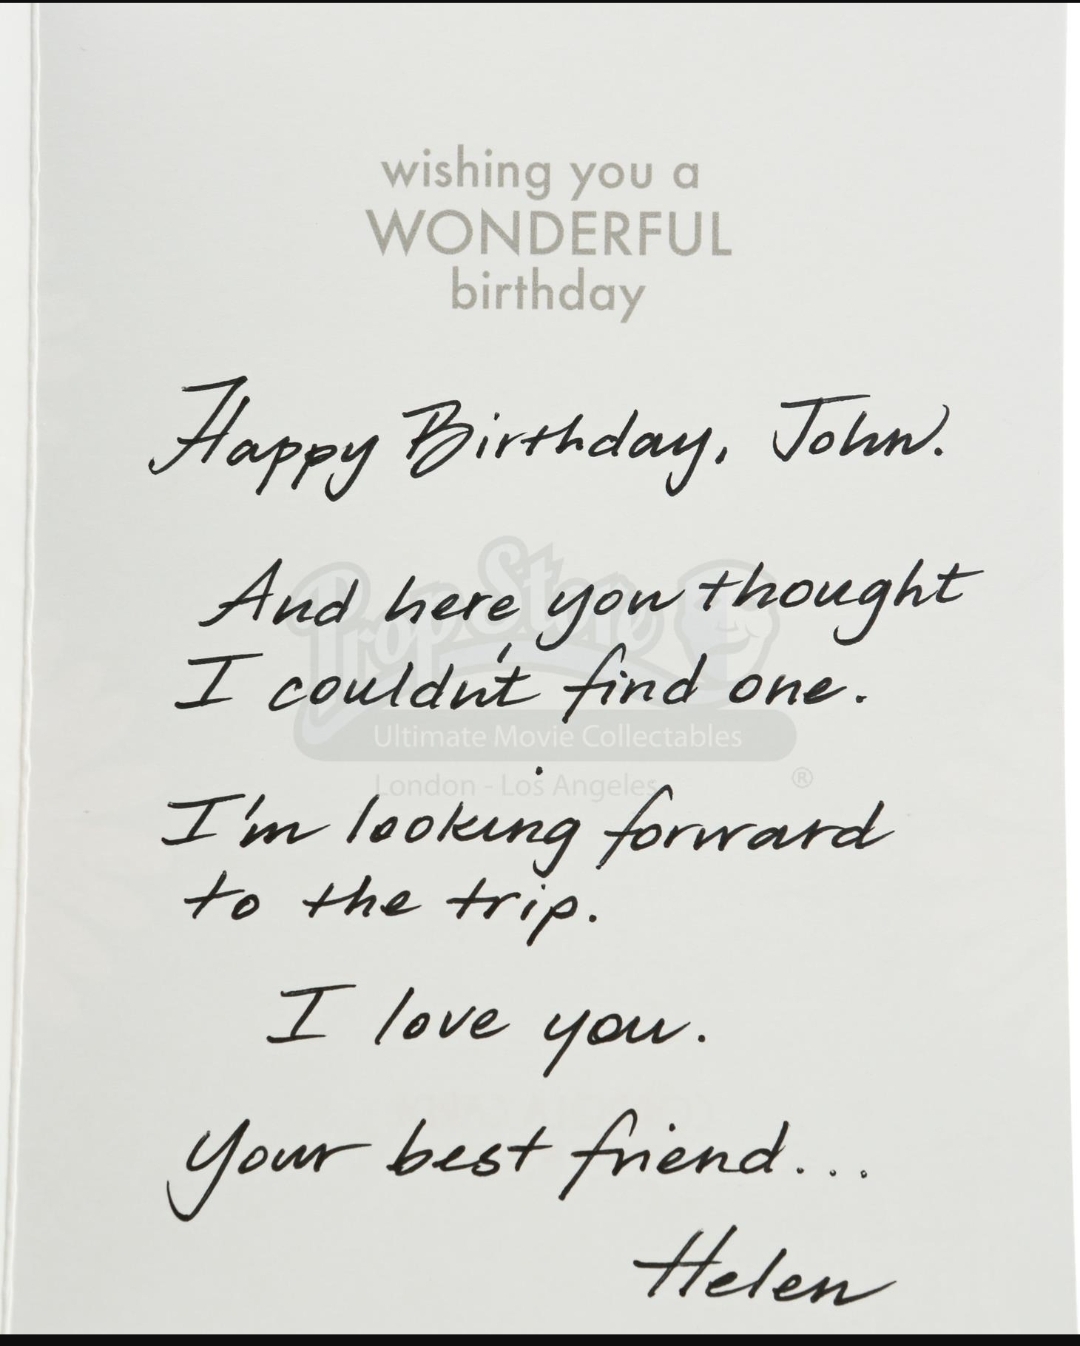 wishing you a
WONDERFUL
birthday
Happy Birthday, John.
And here you thought
I couldn't find one.
I'm looking forward
to the trip.
I love you.
Your best friend...
Helen
Prop Store
Ultimate Movie Collectables
London - Los Angeles
®